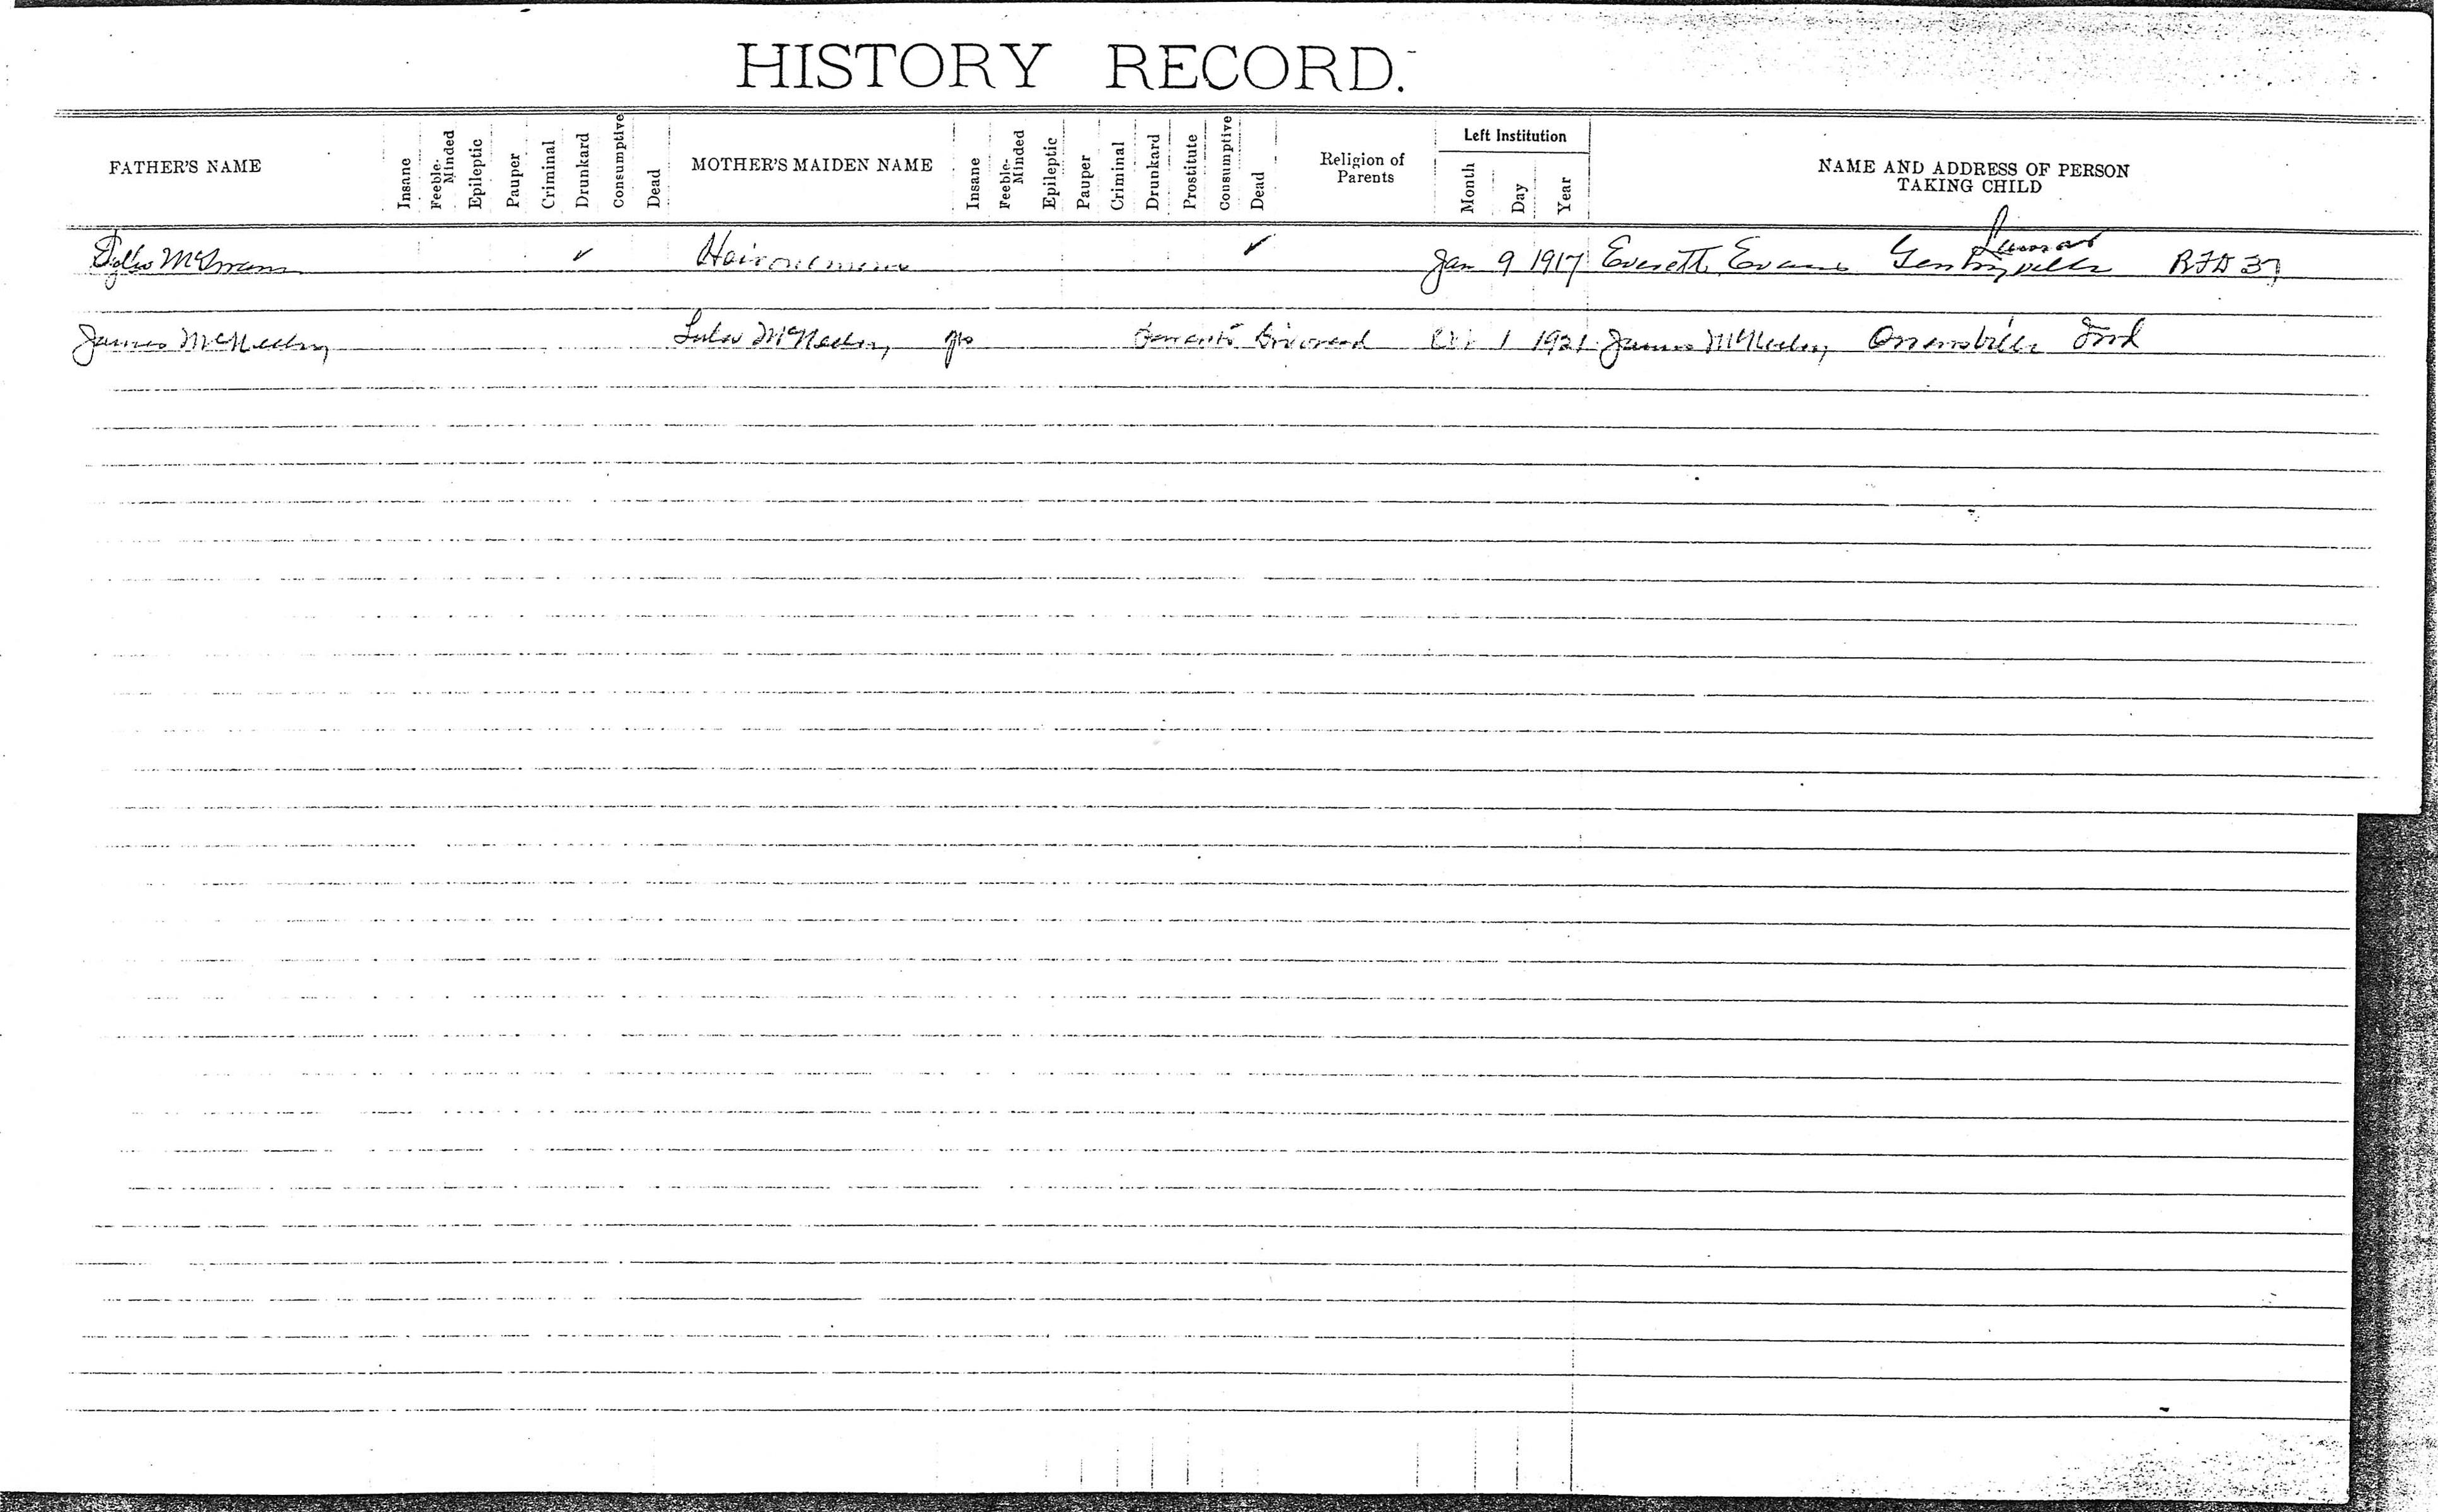 HISTORY RECORD.
FATHER'S NAME Insane Feeble-Minded Epileptic Pauper Criminal Drunkard Consumptive Dead MOTHER'S MAIDEN NAME Insane Feeble-Minded Epileptic Pauper Criminal Drunkard Prostitute Consumptive Dead Religion of Parents Left Institution Month Day Year NAME AND ADDRESS OF PERSON TAKING CHILD
✓ ✓ Jan 9 1917 Everett Evans Lamar Gentryville RFD 37
James McNeeley McNeeley Divorced 1 1921 James McNeeley Ind